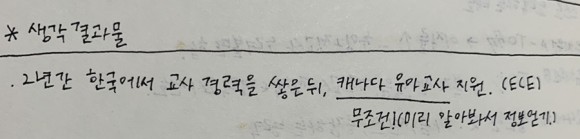 * 생각 결과물
. 2년간 한국에서 교사 경력을 쌓은 뒤, 캐나다 유아교사 지원. (ECE)
무조건! (미리 알아봐서 정보얻기.)